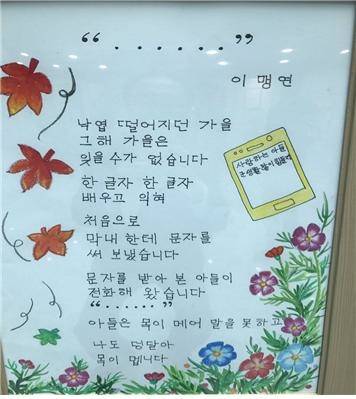 “ . . . . . . ”
이 맹 연
낙엽 떨어지던 가을
그해 가을은
잊을수가 없습니다
한글자 한글자
배우고 익혀
처음으로
막내 한테 문자를
써 보냈습니다
사랑하는 아들
문자를 받아 본 아들이
전화해 왔습니다
“ . . . . . . ”
아들은 목이 메어 말을 못하고
나도 덩달아
목이 멥니다